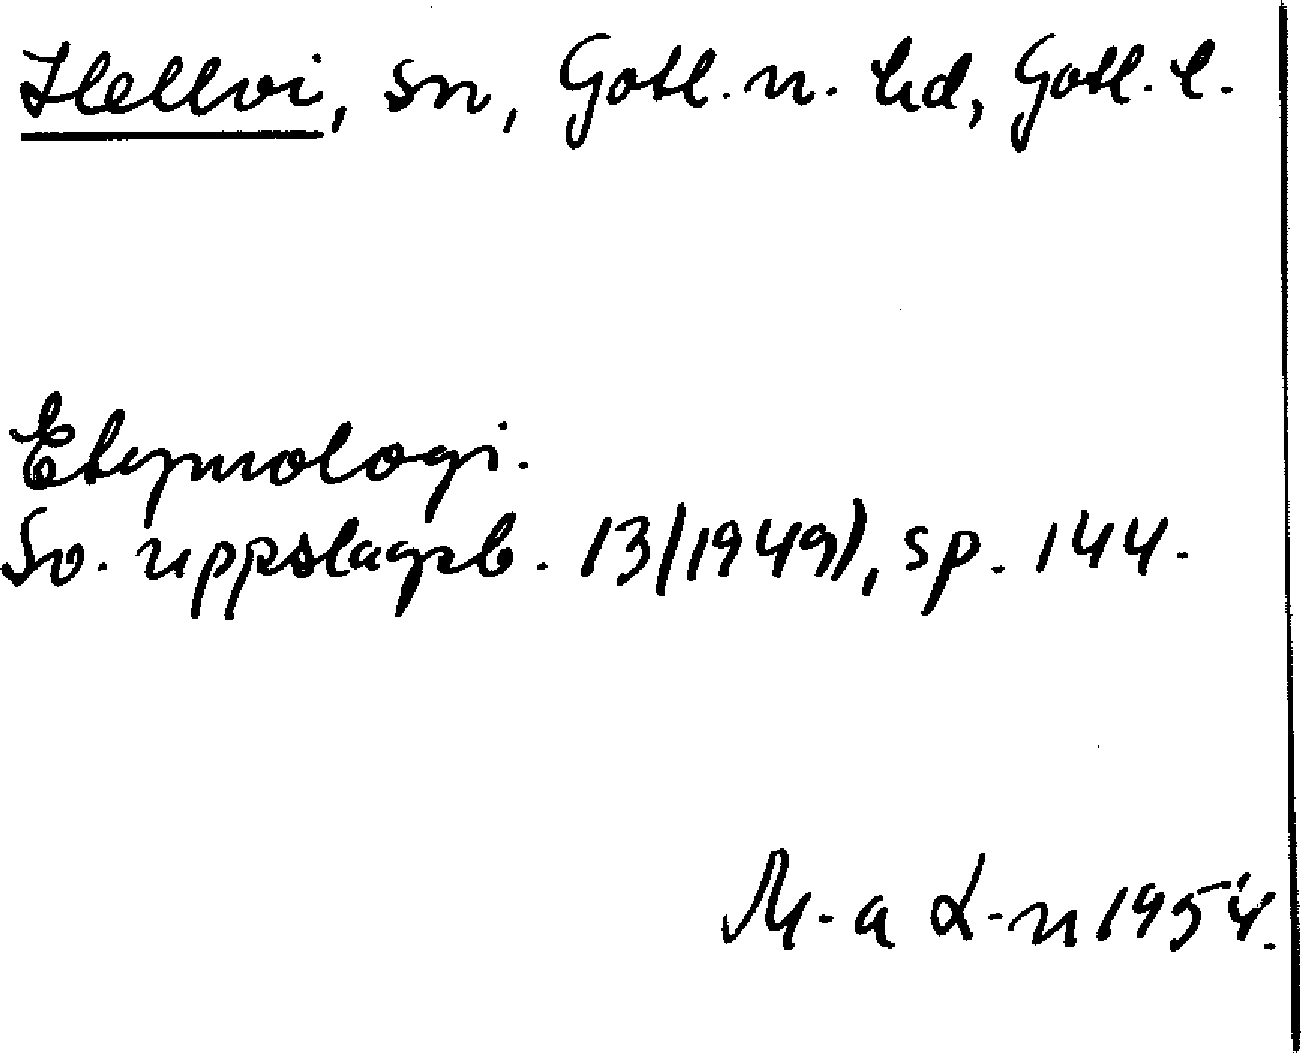 Hellvi, sn, Gotl. n. hd, Gotl. l.
Etymologi.
Sv. uppslagsb. 13 (1949), sp. 144.
M-a L-n 1954.